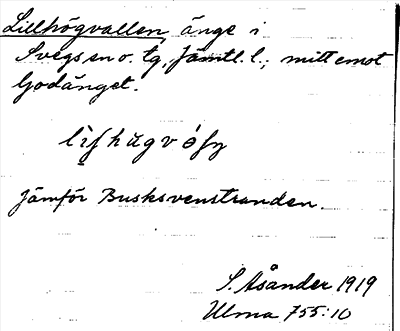 Lillhögvallen, änge i
Svegs sn o. tg, Jämtl. l.; mitt emot
Godänget.
Jämför Busksvenstranden.
S. Åsander 1919
Ulma 755:10